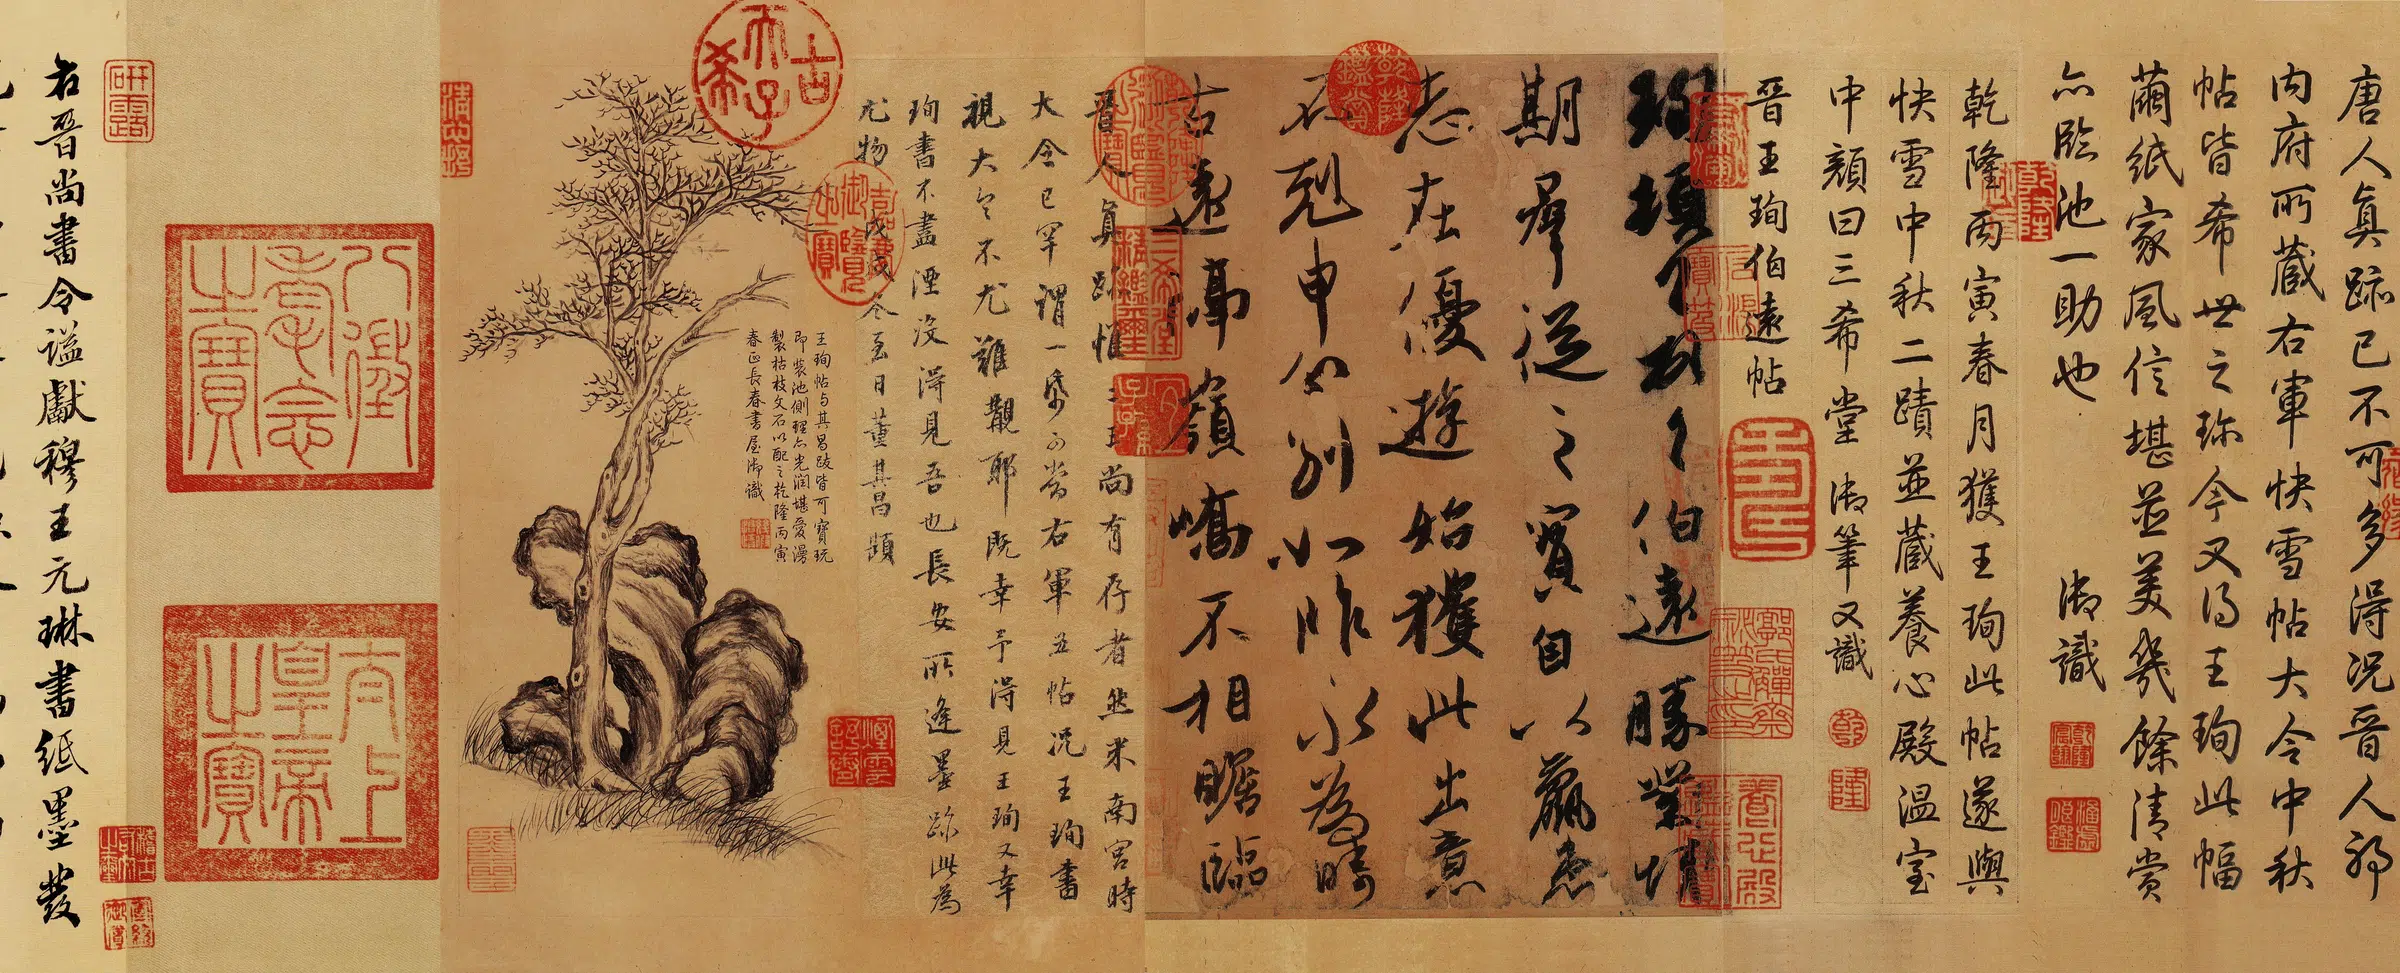 唐人真跡已不可多得況晉人耶
内府所藏右軍快雪帖大令中秋
帖皆希世之珍今又得王珣此幅
繭紙家風信堪並美幾餘清賞
亦臨池一助也 御識
乾隆丙寅春月獲王珣此帖遂與
快雪中秋二蹟並藏養心殿温室
中顔曰三希堂 御筆又識
晉王珣伯遠帖
珣頓首頓首伯遠勝業情
期群從之寶自以羸患
志在優遊始獲此出意
不剋申分别如昨永為疇
古遠隔嶺嶠不相瞻臨
晉人真跡惟二王尚有存者然米南宮時
大令已罕謂一紙可當右軍五帖況王珣書
視大令不尤難覯耶既幸予得見王珣又幸
珣書不盡湮没得見吾也長安所逢墨跡此為
尤物 戊戌冬至日董其昌題
王珣帖與其昌跋皆可寶玩
即裝池側理亦光潤堪愛漫
製枯枝文石以配之乾隆丙寅
春正長春書屋御識
古希天子
乾隆御覽之寶
嘉慶御覽之寶
三希堂精鑑璽
宜子孫
乾隆鑑賞
八徵耄念之寶
太上皇帝之寶
研露
右晉尚書令謚獻穆王元琳書紙墨發